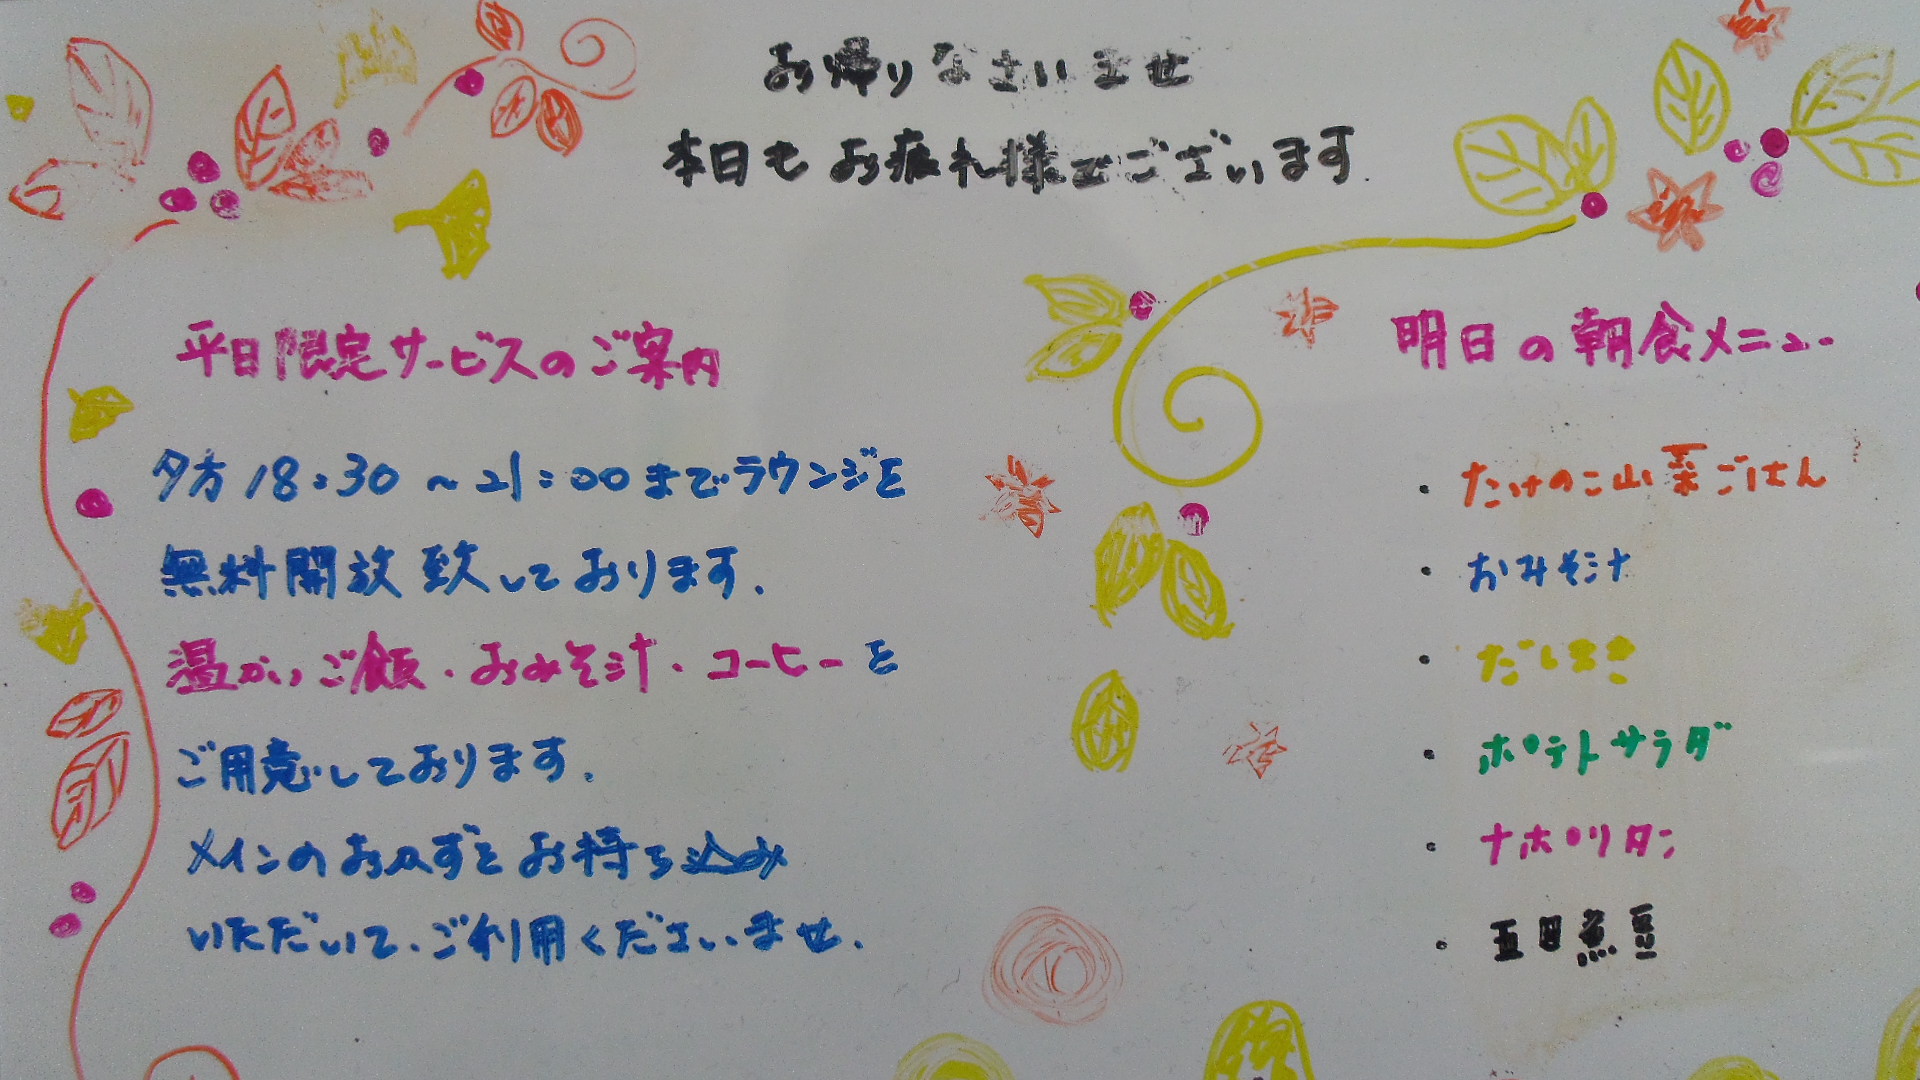 お帰りなさいませ
本日もお疲れ様でございます.
平日限定サービスのご案内
夕方18:30~21:00までラウンジを
無料開放致しております.
温かいご飯・おみそ汁・コーヒーを
ご用意しております.
メインのおかずをお持ち込み
いただいて、ご利用くださいませ.
明日の朝食メニュー
・たけのこ山菜ごはん
・おみそ汁
・だしまき
・ポテトサラダ
・ナポリタン
・五目煮豆